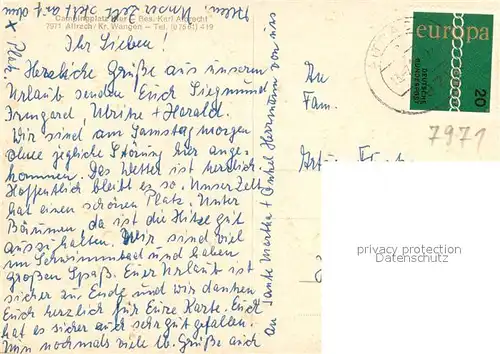 Campingplatz Iller - Bes. Karl Albrecht
7971 Aitrach/Kr. Wangen - Tel. (07561) 419
Ihr Lieben!
Herzliche Grüße aus unserem
Urlaub senden Euch Siegmund
Irmgard, Ulrike + Harald.
Wir sind am Samstag morgen
ohne jegliche Störung hier ange-
kommen. Das Wetter ist herrlich
Hoffentlich bleibt es so. Unser Zelt
hat einen schönen Platz. Unter
Bäumen, da ist die Hitze gut
auszuhalten. Wir sind viel
im Schwimmbad und haben
großen Spaß. Euer Urlaub ist
sicher zu Ende und wir danken
Euch herzlich für Eure Karte. Euch
hat es sicher auch sehr gut gefallen.
Nun nochmals viele lb. Grüße auch
an Tante Martha + Onkel Herrmann von uns
x Platz
Unser Zelt steht auf dem
An
Fam.
europa
DEUTSCHE
BUNDESPOST
20
7971
privacy protection
www.oldthing.de